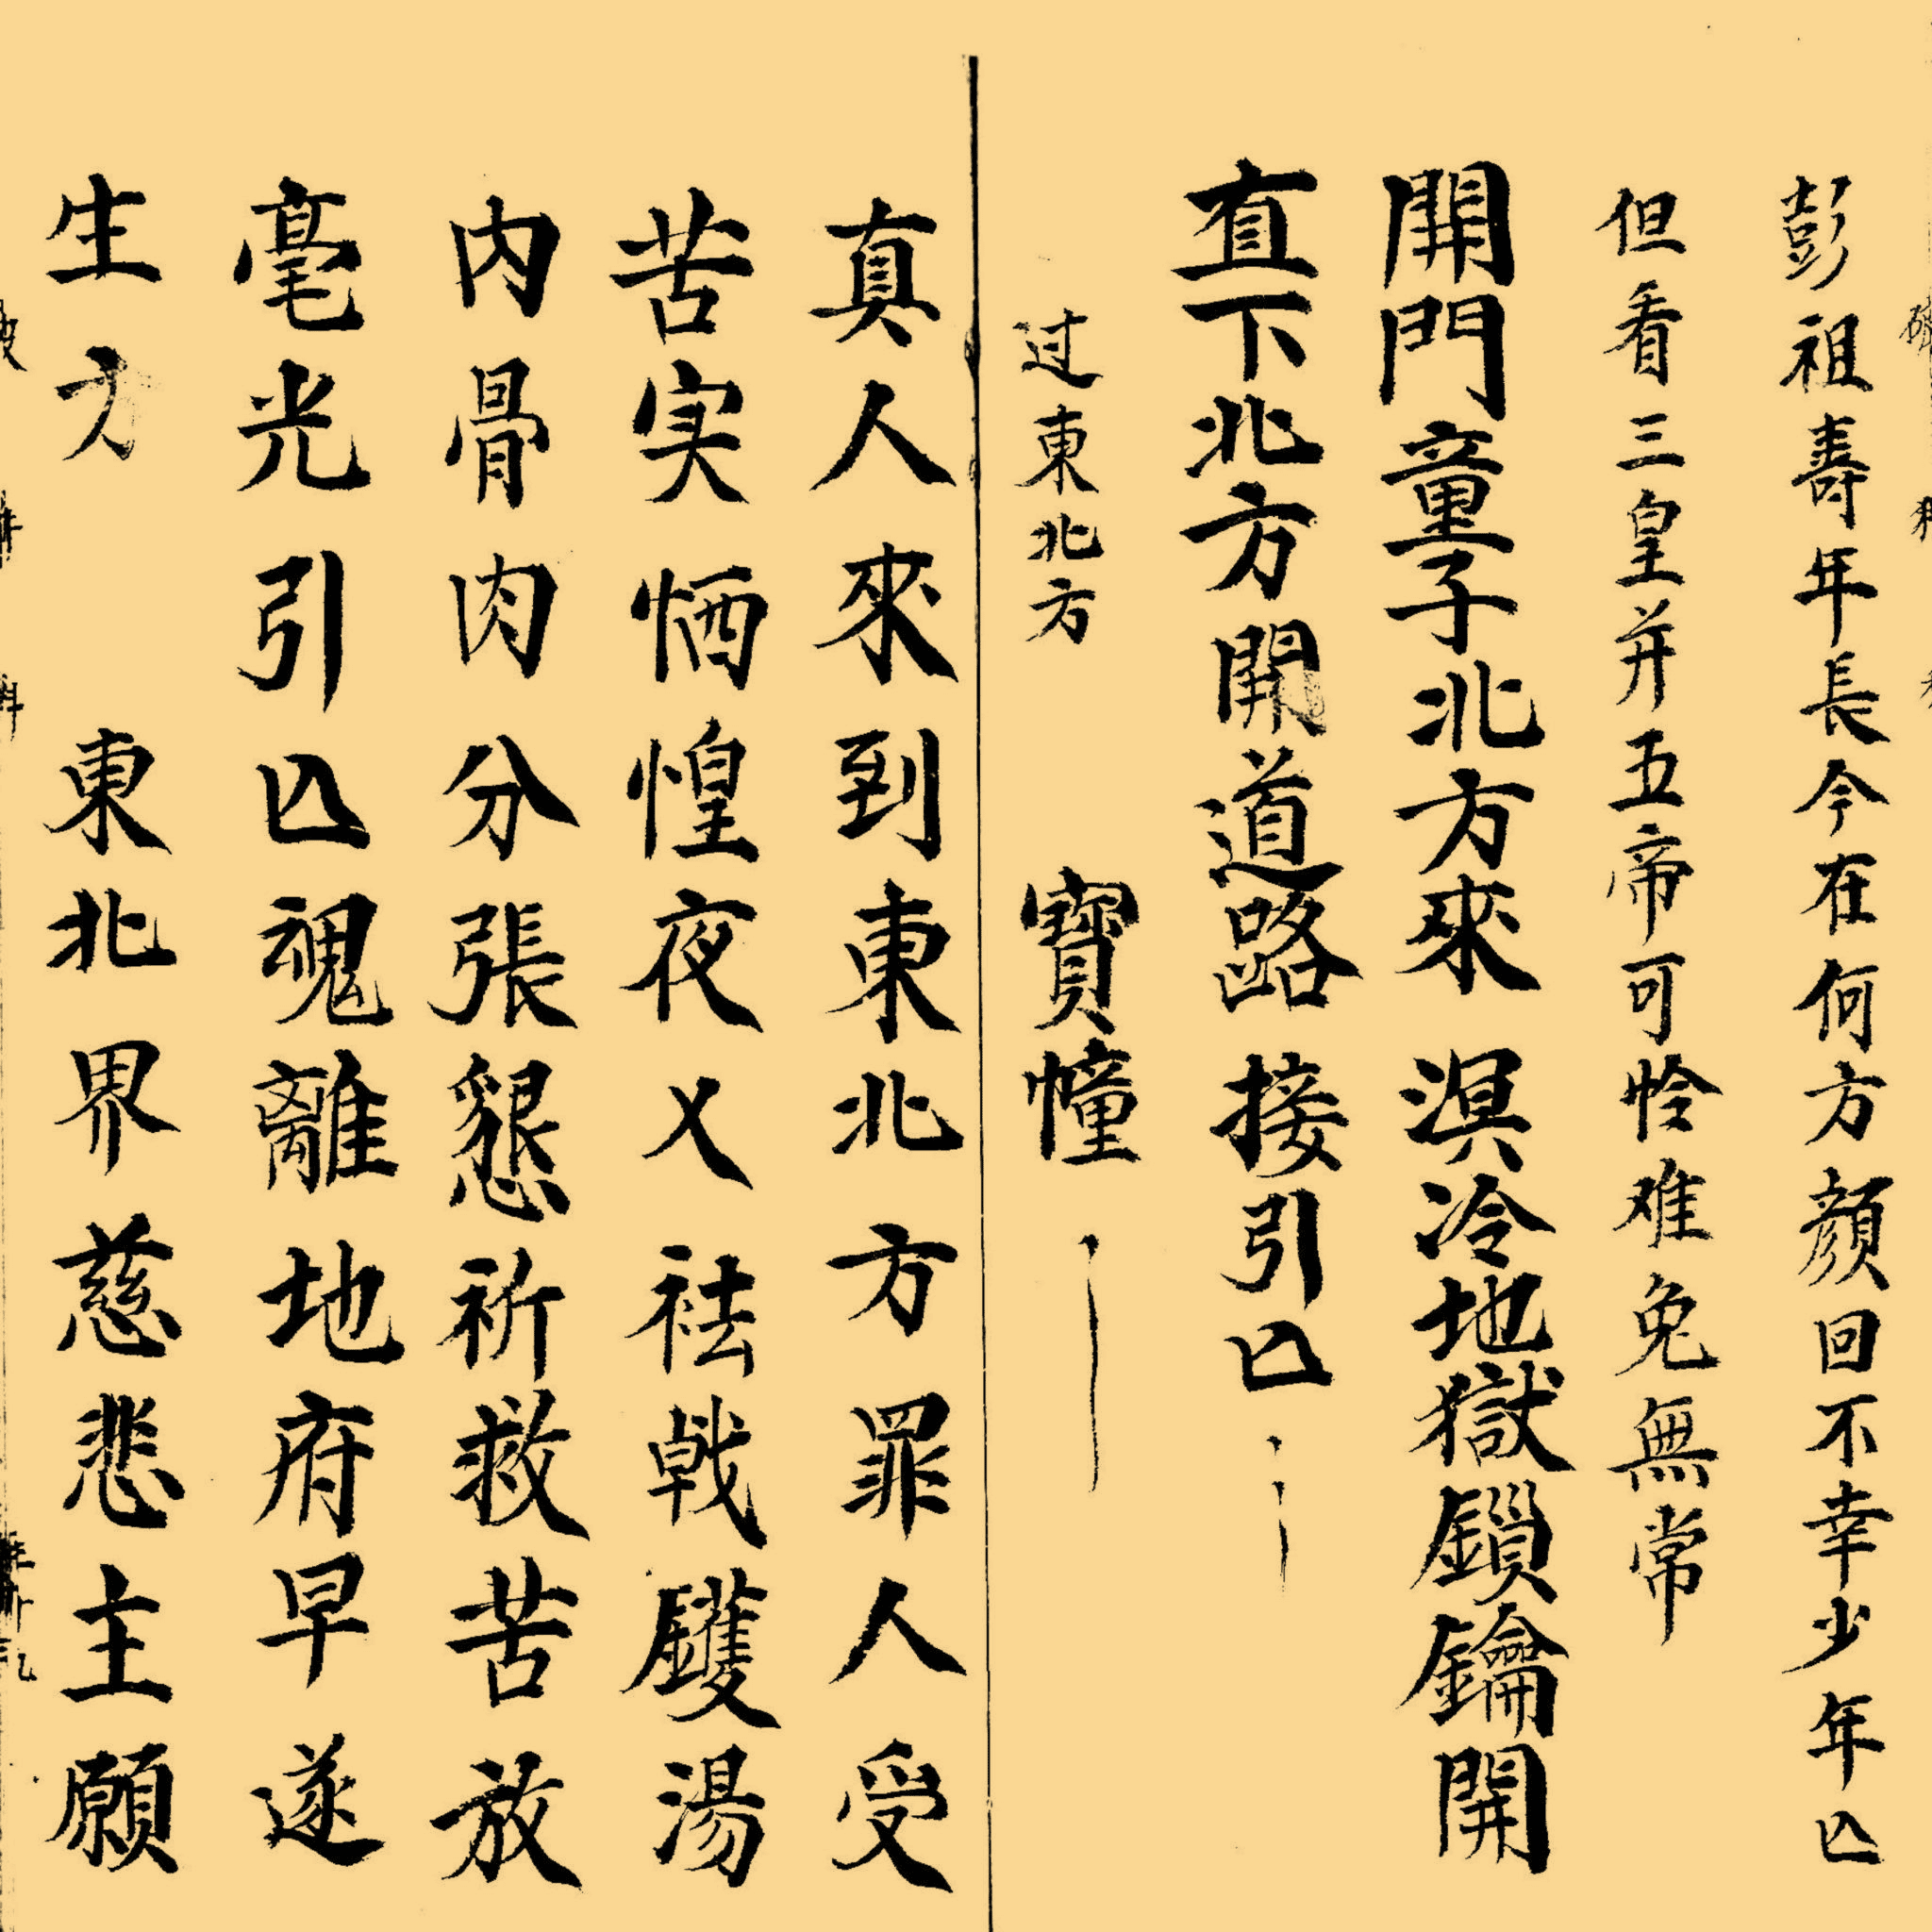 彭祖壽年長今在何方顏回不幸少年亾
但看三皇并五帝可怜难免無常
開門童子北方來 溟冷地獄鎖鑰開
直下北方開道路 接引亾
过東北方 寶幢
真人來到東北方罪人受
苦実恓惶夜乂祛戟鑊湯
内骨肉分張懇祈救苦放
毫光引亾魂離地府早遂
生方 東北界慈悲主願